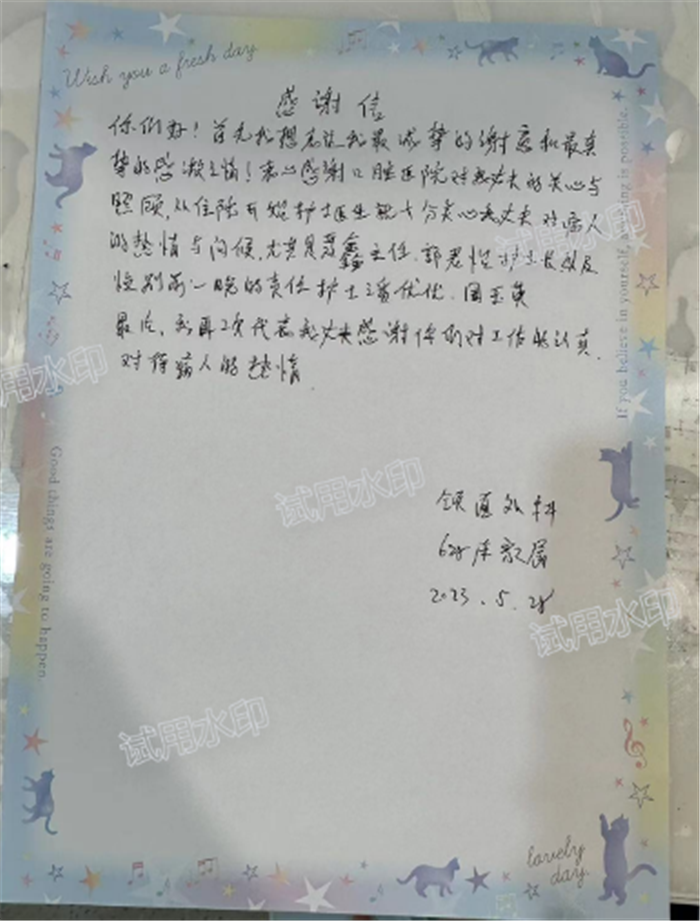 Wish you a fresh day
感谢信
你们好！首先我想表达我最诚挚的谢意和最真
挚的感激之情！衷心感谢口腔医院对我丈夫的关心与
照顾，从住院开始护士医生都十分关心我丈夫对病人
的热情与问候，尤其是鑫主任，郭君性护士长以及
值别前一晚的责任护士潘优优，周玉英
最后，我再2次代表我丈夫感谢你们对工作的认真，
对待病人的热情
颌面外科
床家属
2023.5.28
If you believe in yourself, anything is possible.
Good things are going to happen.
lovely
day.
试用水印
试用水印
试用水印
试用水印
试用水印